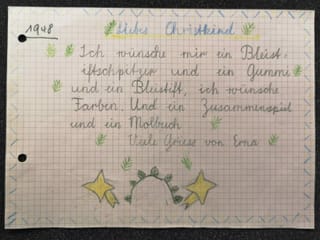 1948
Liebes Christkind
Ich wünsche mir ein Bleist-
iftschpitzer und ein Gummi
und ein Bleistift, ich wünsche
Farben. Und ein Zusammenspiel
und ein Molbuch
Viele Grüsse von Erna